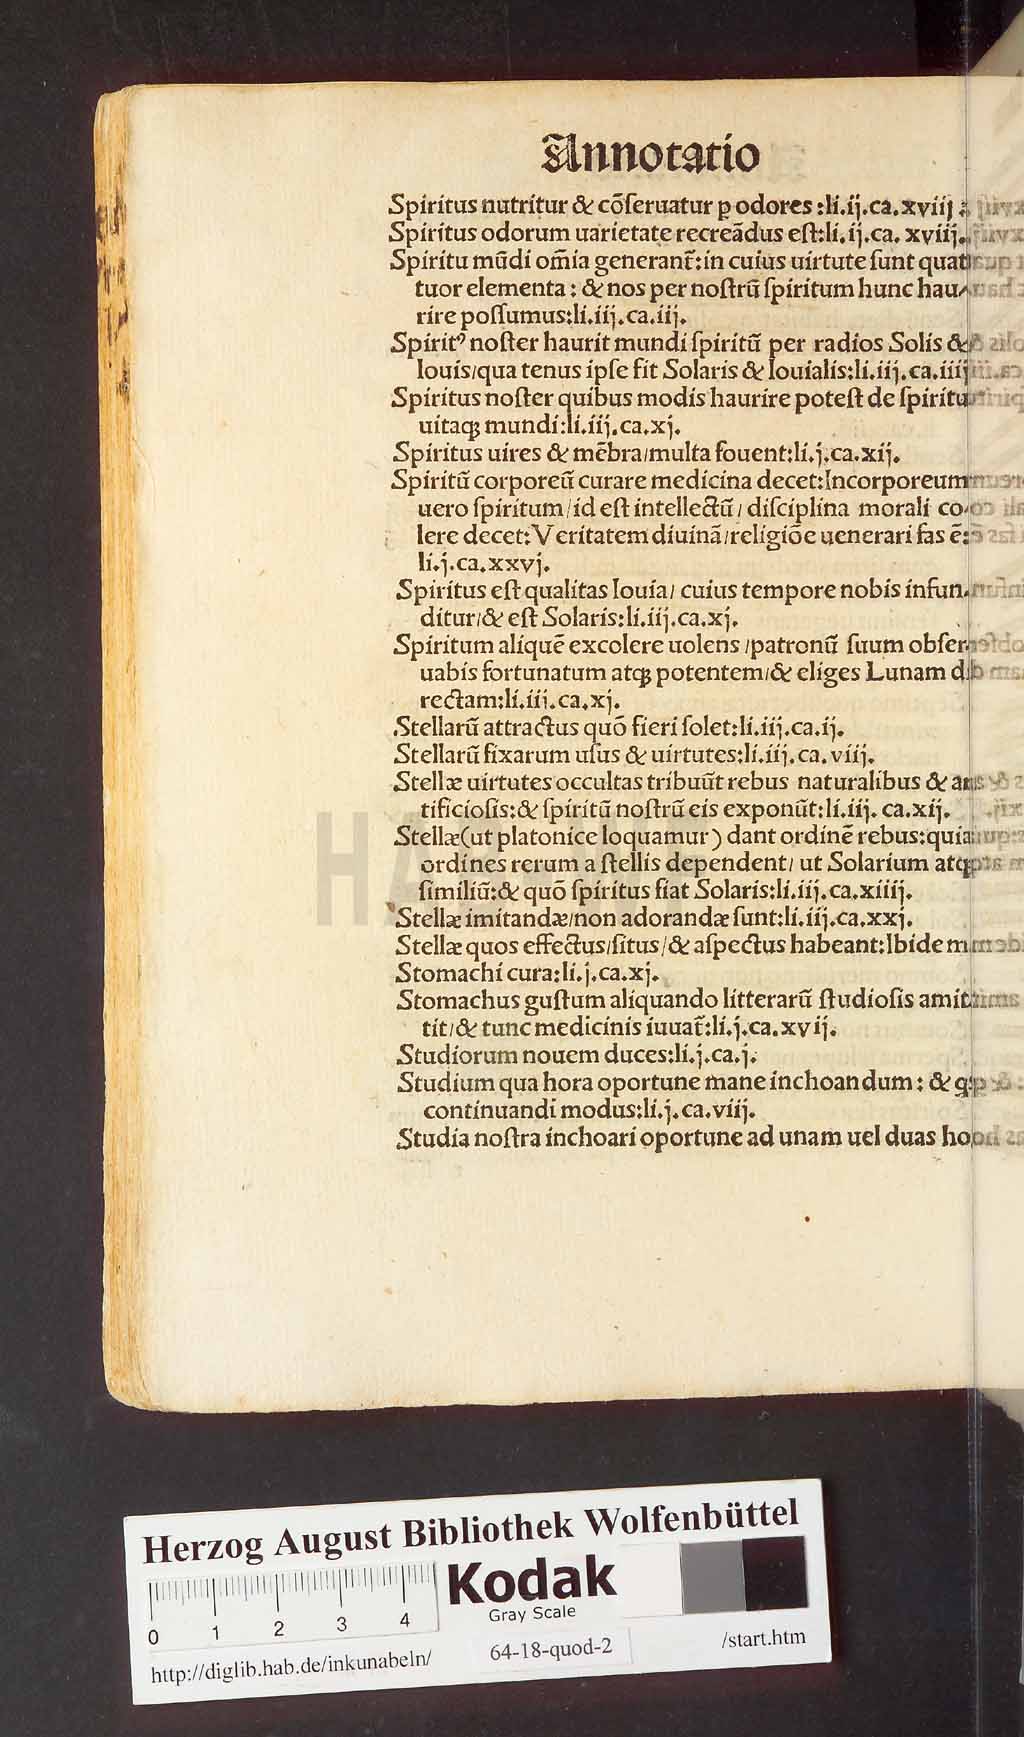 Annotatio
Spiritus nutritur & cõſeruatur ꝑ odores :li.ij.ca.xviij.
Spiritus odorum uarietate recreãdus eſt:li.ij.ca. xviij.
Spiritu mũdi om̃ia generant᷑:in cuius uirtute ſunt quat
tuor elementa : & nos per noſtrũ ſpiritum hunc hau
rire poſſumus:li.iij.ca.iij.
Spiritꝰ noſter haurit mundi ſpiritũ per radios Solis &
Iouis/qua tenus ipſe fit Solaris & Iouialis:li.iij.ca.iiij
Spiritus noſter quibus modis haurire poteſt de ſpiritu
uitaqꝫ mundi:li.iij.ca.xj.
Spiritus uires & mẽbra/multa fouent:li.j.ca.xij.
Spiritũ corporeũ curare medicina decet:Incorporeum
uero ſpiritum/id eſt intellectũ/ diſciplina morali co-
lere decet: Veritatem diuinã/religiõe uenerari fas ẽ:
li.j.ca.xxvj.
Spiritus eſt qualitas Iouia/ cuius tempore nobis infun-
ditur/& eſt Solaris:li.iij.ca.xj.
Spiritum aliquẽ excolere uolens /patronũ ſuum obſer-
uabis fortunatum atqꝫ potentem/& eliges Lunam di
rectam:li.iij.ca.xj.
Stellarũ attractus quõ fieri ſolet:li.iij.ca.ij.
Stellarũ fixarum uſus & uirtutes:li.iij.ca.viij.
Stellæ uirtutes occultas tribuũt rebus naturalibus & ar
tificioſis:& ſpiritũ noſtrũ eis exponũt:li.iij. ca.xij.
Stellæ(ut platonice loquamur) dant ordinẽ rebus:quia
ordines rerum a ſtellis dependent/ ut Solarium atqꝫ
ſimiliũ:& quõ ſpiritus fiat Solaris:li.iij.ca.xiiij.
Stellæ imitandæ/non adorandæ ſunt:li.iij.ca.xxj.
Stellæ quos effectus/ſitus/& aſpectus habeant:Ibide m
Stomachi cura:li.j.ca.xj.
Stomachus guſtum aliquando litterarũ ſtudioſis amit
tit/& tunc medicinis iuuat᷑:li.j.ca.xvij.
Studiorum nouem duces:li.j.ca.j.
Studium qua hora oportune mane inchoandum : &
continuandi modus:li.j.ca.viij.
Studia noſtra inchoari oportune ad unam uel duas ho
Herzog August Bibliothek Wolfenbüttel
Kodak
Gray Scale
0 1 2 3 4
http://diglib.hab.de/inkunabeln/
64-18-quod-2
/start.htm